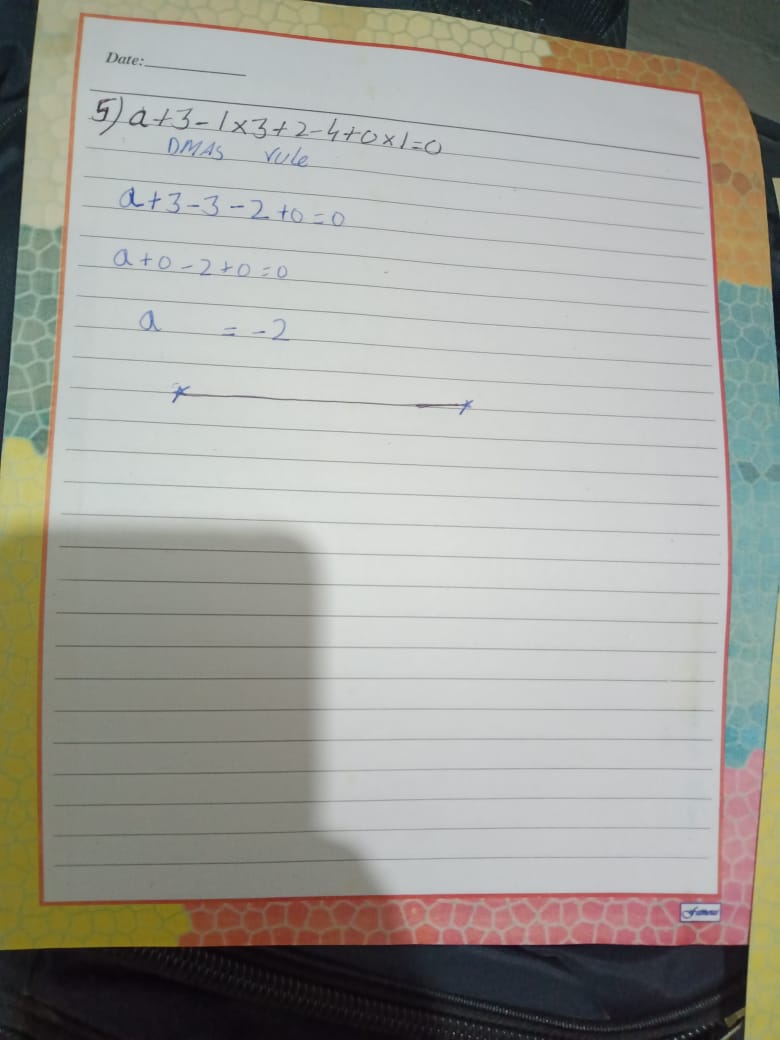 Date:
5) a+3-1×3+2-4+0×1=0
DMAS rule
a+3-3-2+0=0
a+0-2+0=0
a = -2